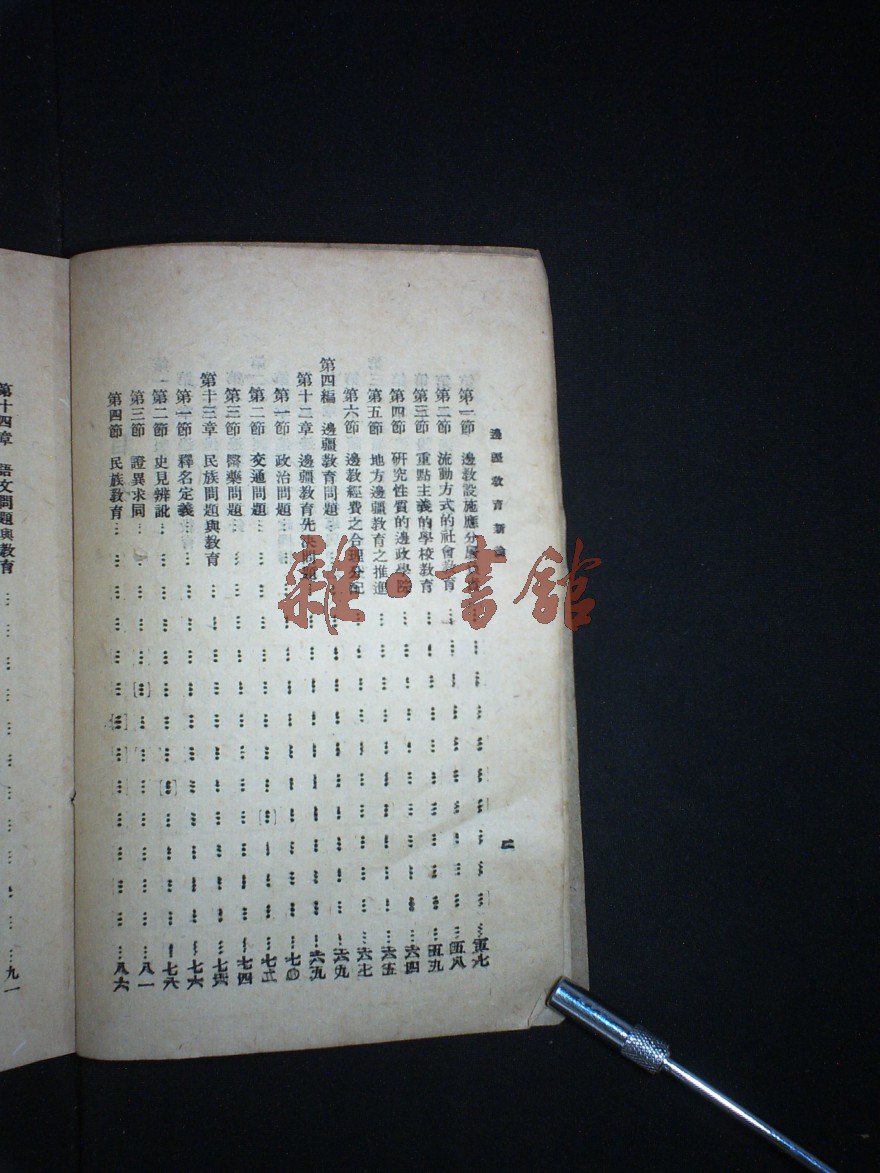 邊疆教育新論
二
第一節 邊教設施應分
第二節 流動方式的社會教育 五八
第三節 重點主義的學校教育 五九
第四節 研究性質的邊政學院 六四
第五節 地方邊疆教育之推進 六五
第六節 邊教經費之合理分配 六七
第四編 邊疆教育問題 六九
第十二章 邊疆教育先決問題 六九
第一節 政治問題 七〇
第二節 交通問題
第三節 醫藥問題 七四
第十三章 民族問題與教育 七六
第一節 釋名定義 七六
第二節 史見辨訛 七八
第三節 證異求同 八一
第四節 民族教育 八六
第十四章 語文問題與教育 九一
雜·書館